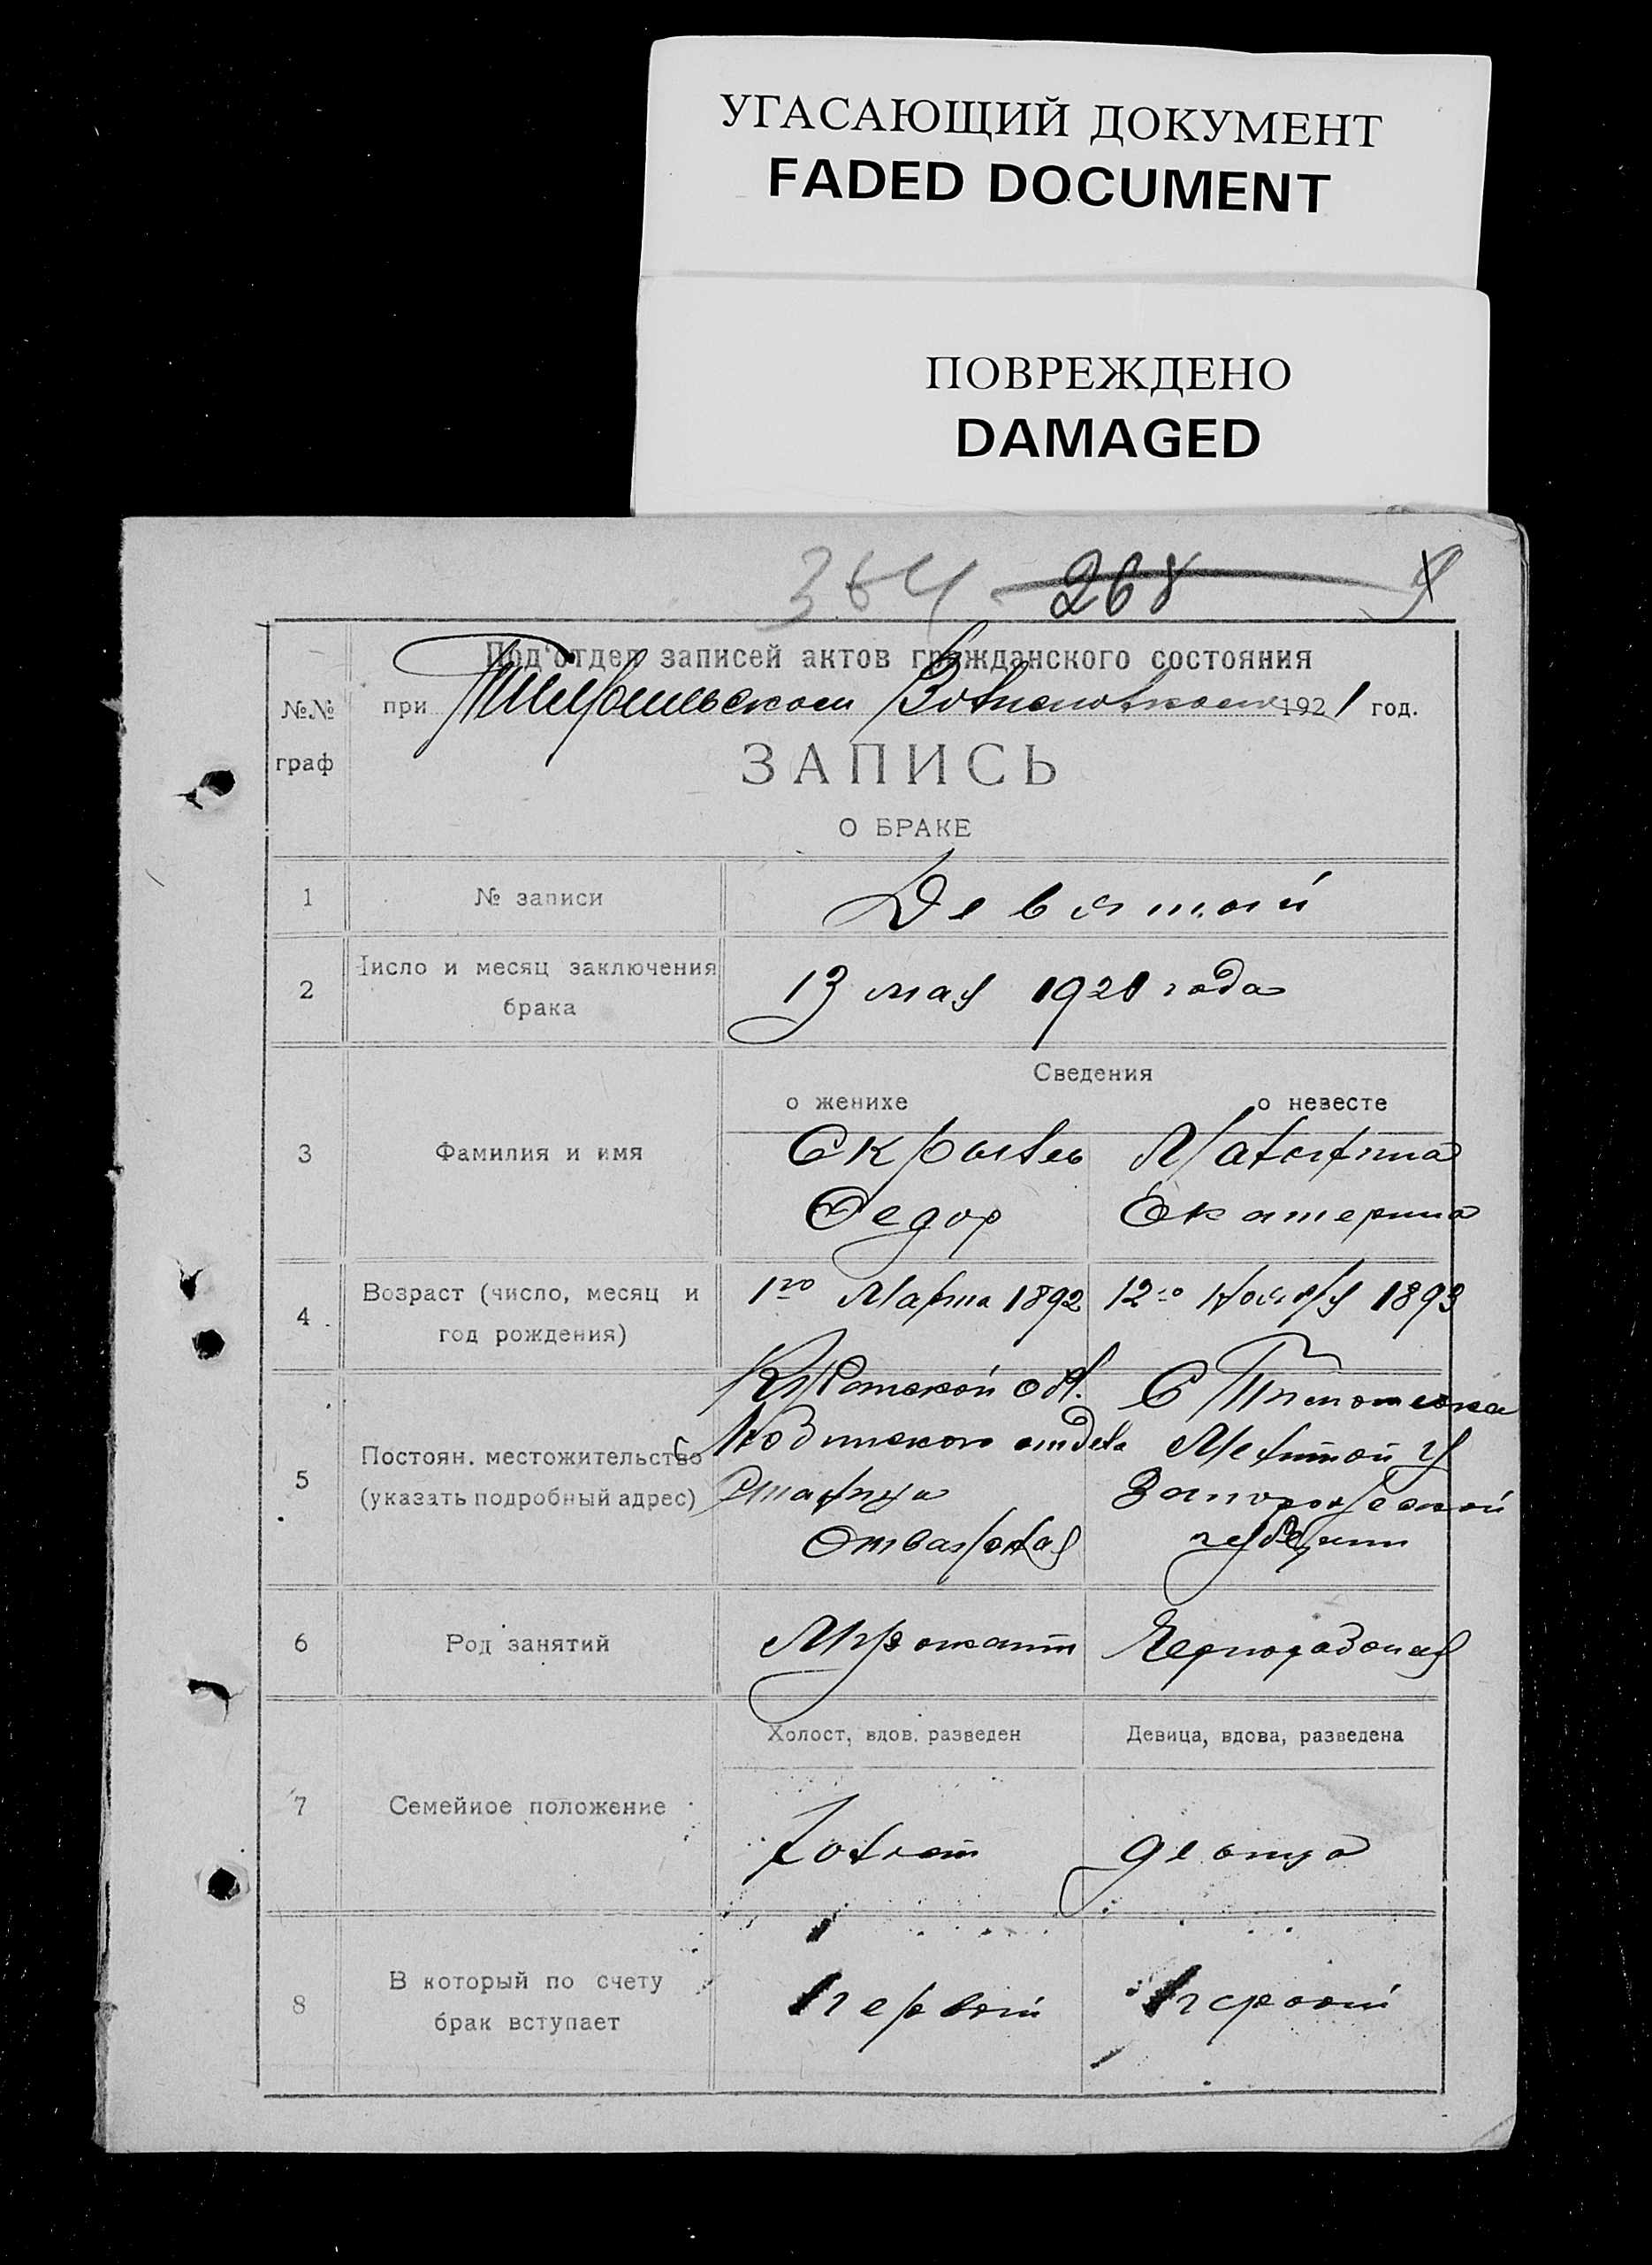 УГАСАЮЩИЙ ДОКУМЕНТ
FADED DOCUMENT
ПОВРЕЖДЕНО
DAMAGED
364 268
Под'отдел записей актов гражданского состояния
№№ граф
при 1921 год.
ЗАПИСЬ
О БРАКЕ
1 № записи Девятый
2 Число и месяц заключения брака 13 мая 1921 года
Сведения
о женихе о невесте
3 Фамилия и имя
Федор Екатерина
4 Возраст (число, месяц и год рождения) 1го Марта 1892 12го Ноября 1893
5 Постоян. местожительство (указать подробный адрес)
Кубанской обл. С Тимошевка
отдела Мелитой У
Станица Запорожской
Отважная губернии
6 Род занятий Музыкант Чернорабочая
Холост, вдов, разведен Девица, вдова, разведена
7 Семейное положение Холост девица
8 В который по счету брак вступает первый первый